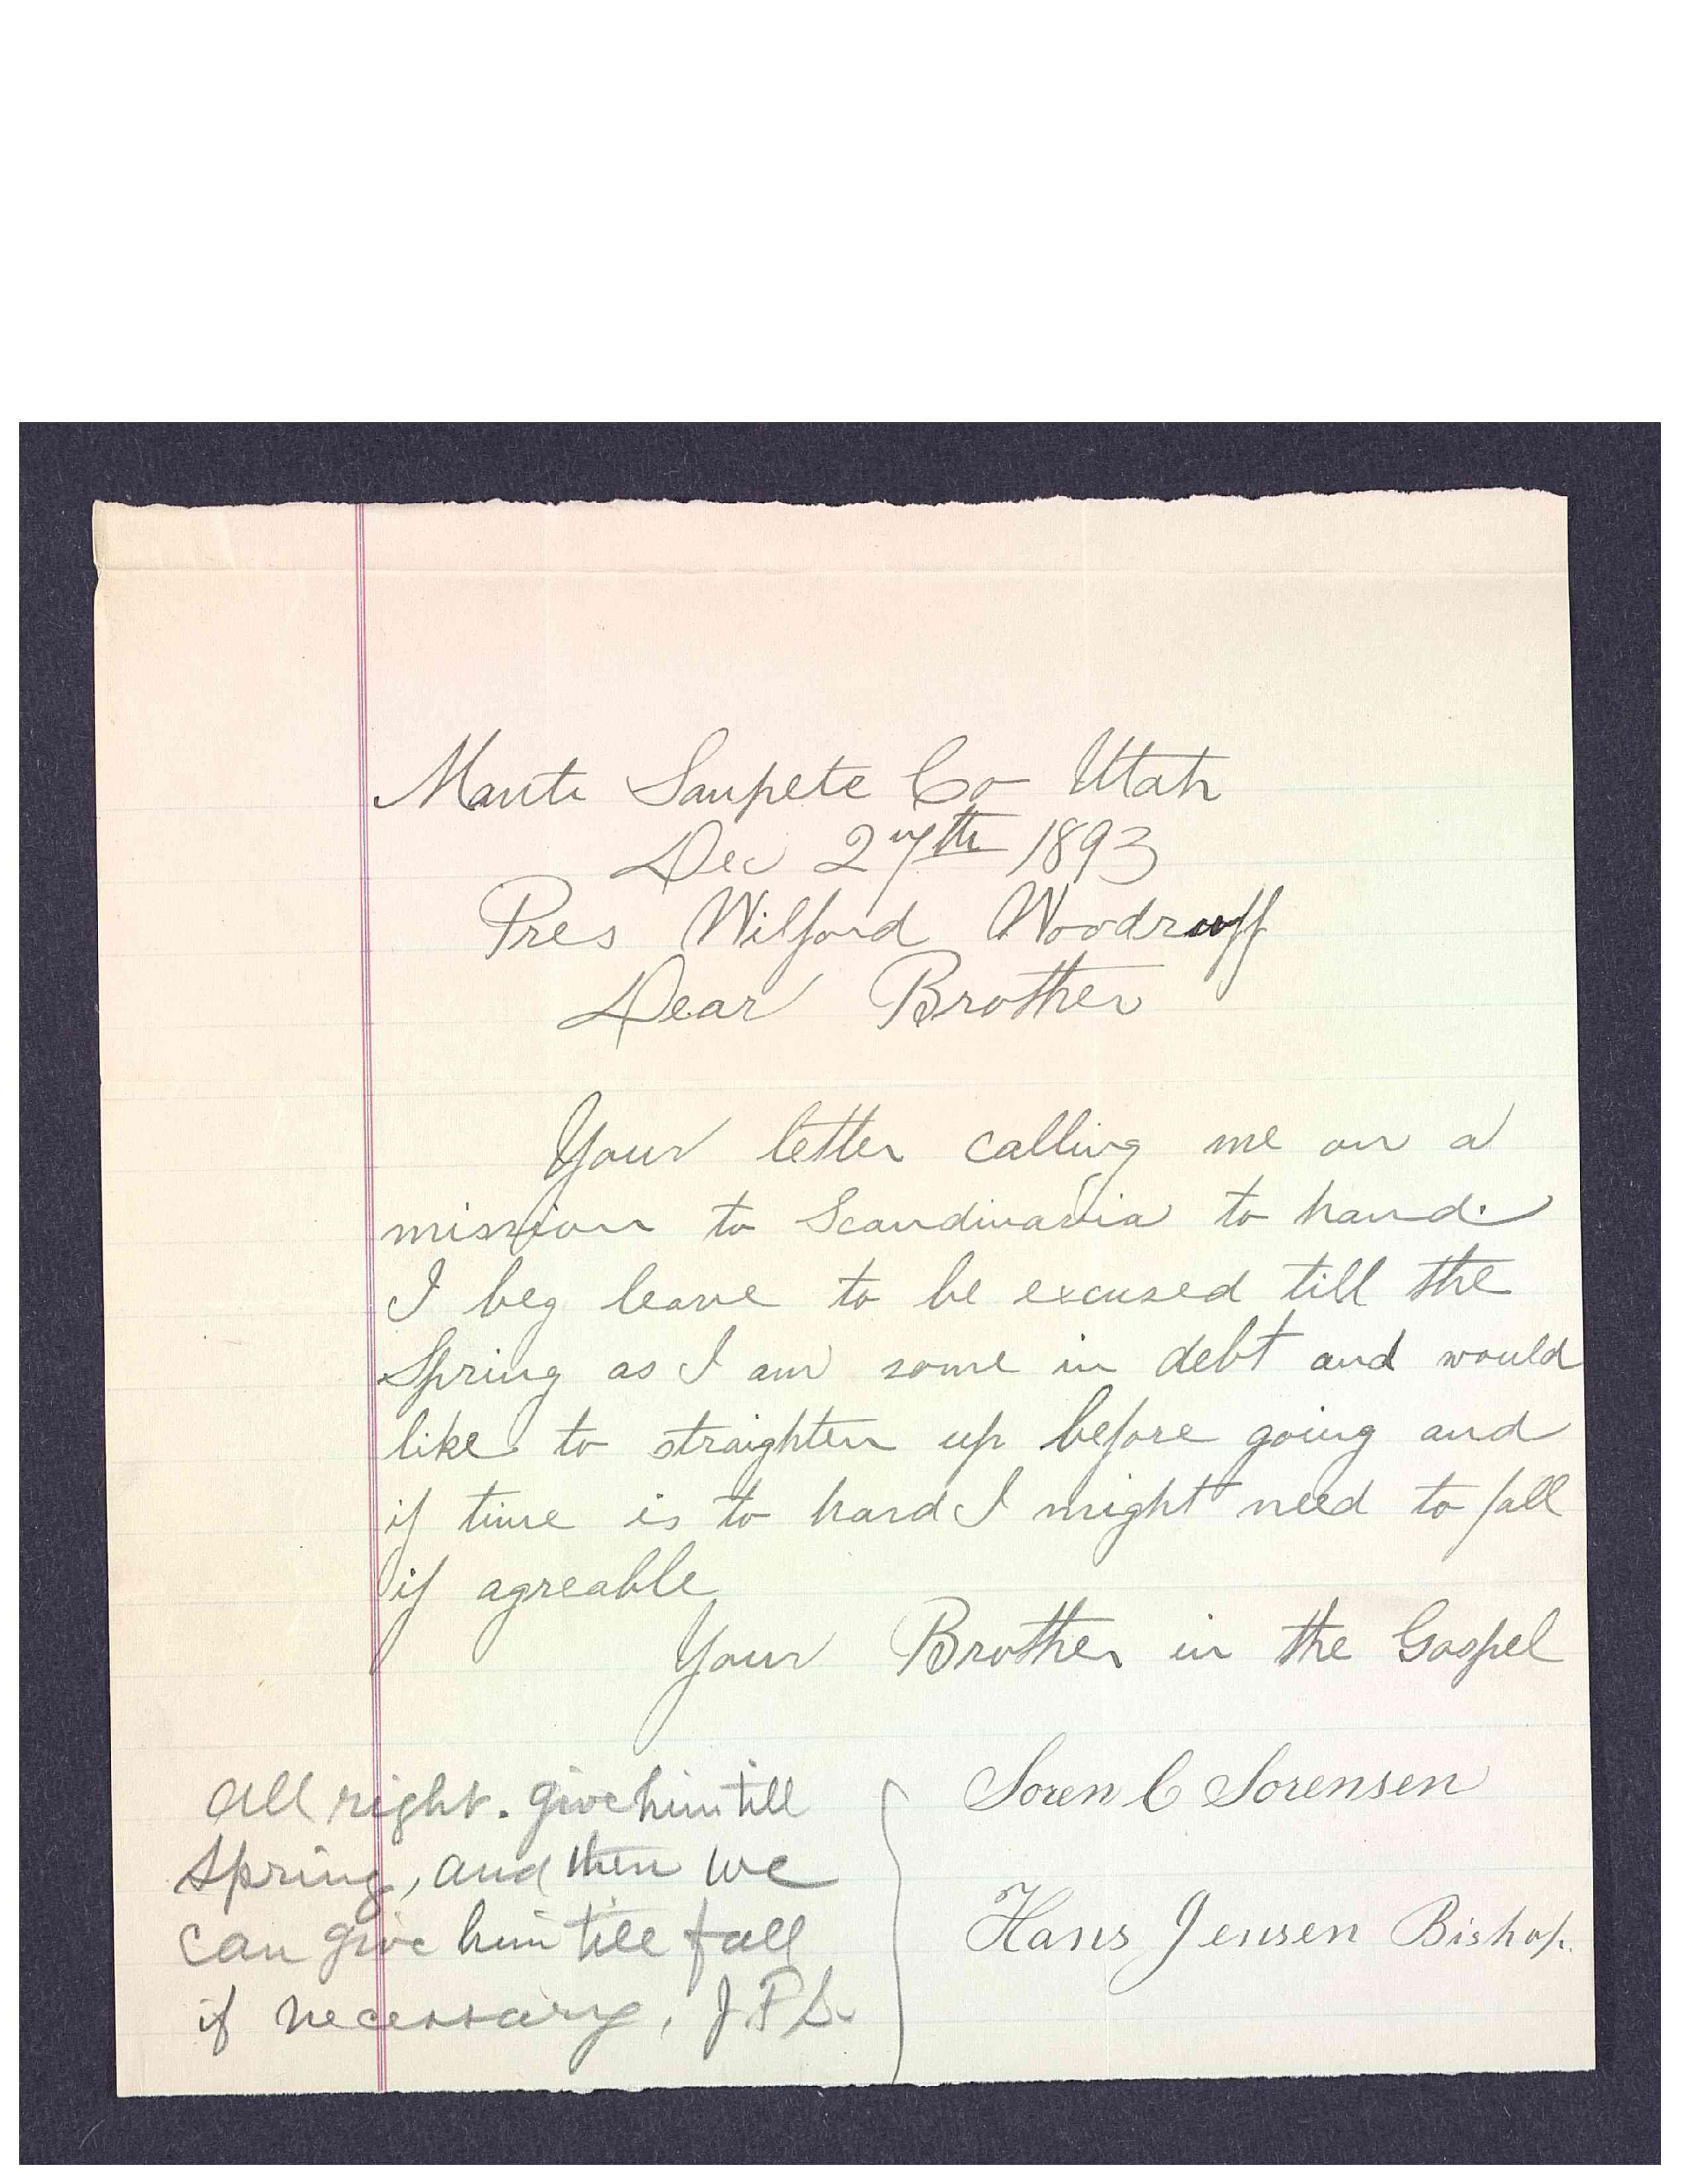 Manti Sanpete Co Utah
Dec 27th 1893
Pres Wilford Woodruff
Dear Brother
Your letter calling me on a
mission to Scandinavia to hand.
I beg leave to be excused till the
Spring as I am some in debt and would
like to straighten up before going and
if time is to hard I might need to fall
if agreable
Your Brother in the Gospel
Soren C Sorensen
Hans Jensen Bishop.
All right. give him till
spring, and then we
can give him till fall
if necessary, J. F. S.